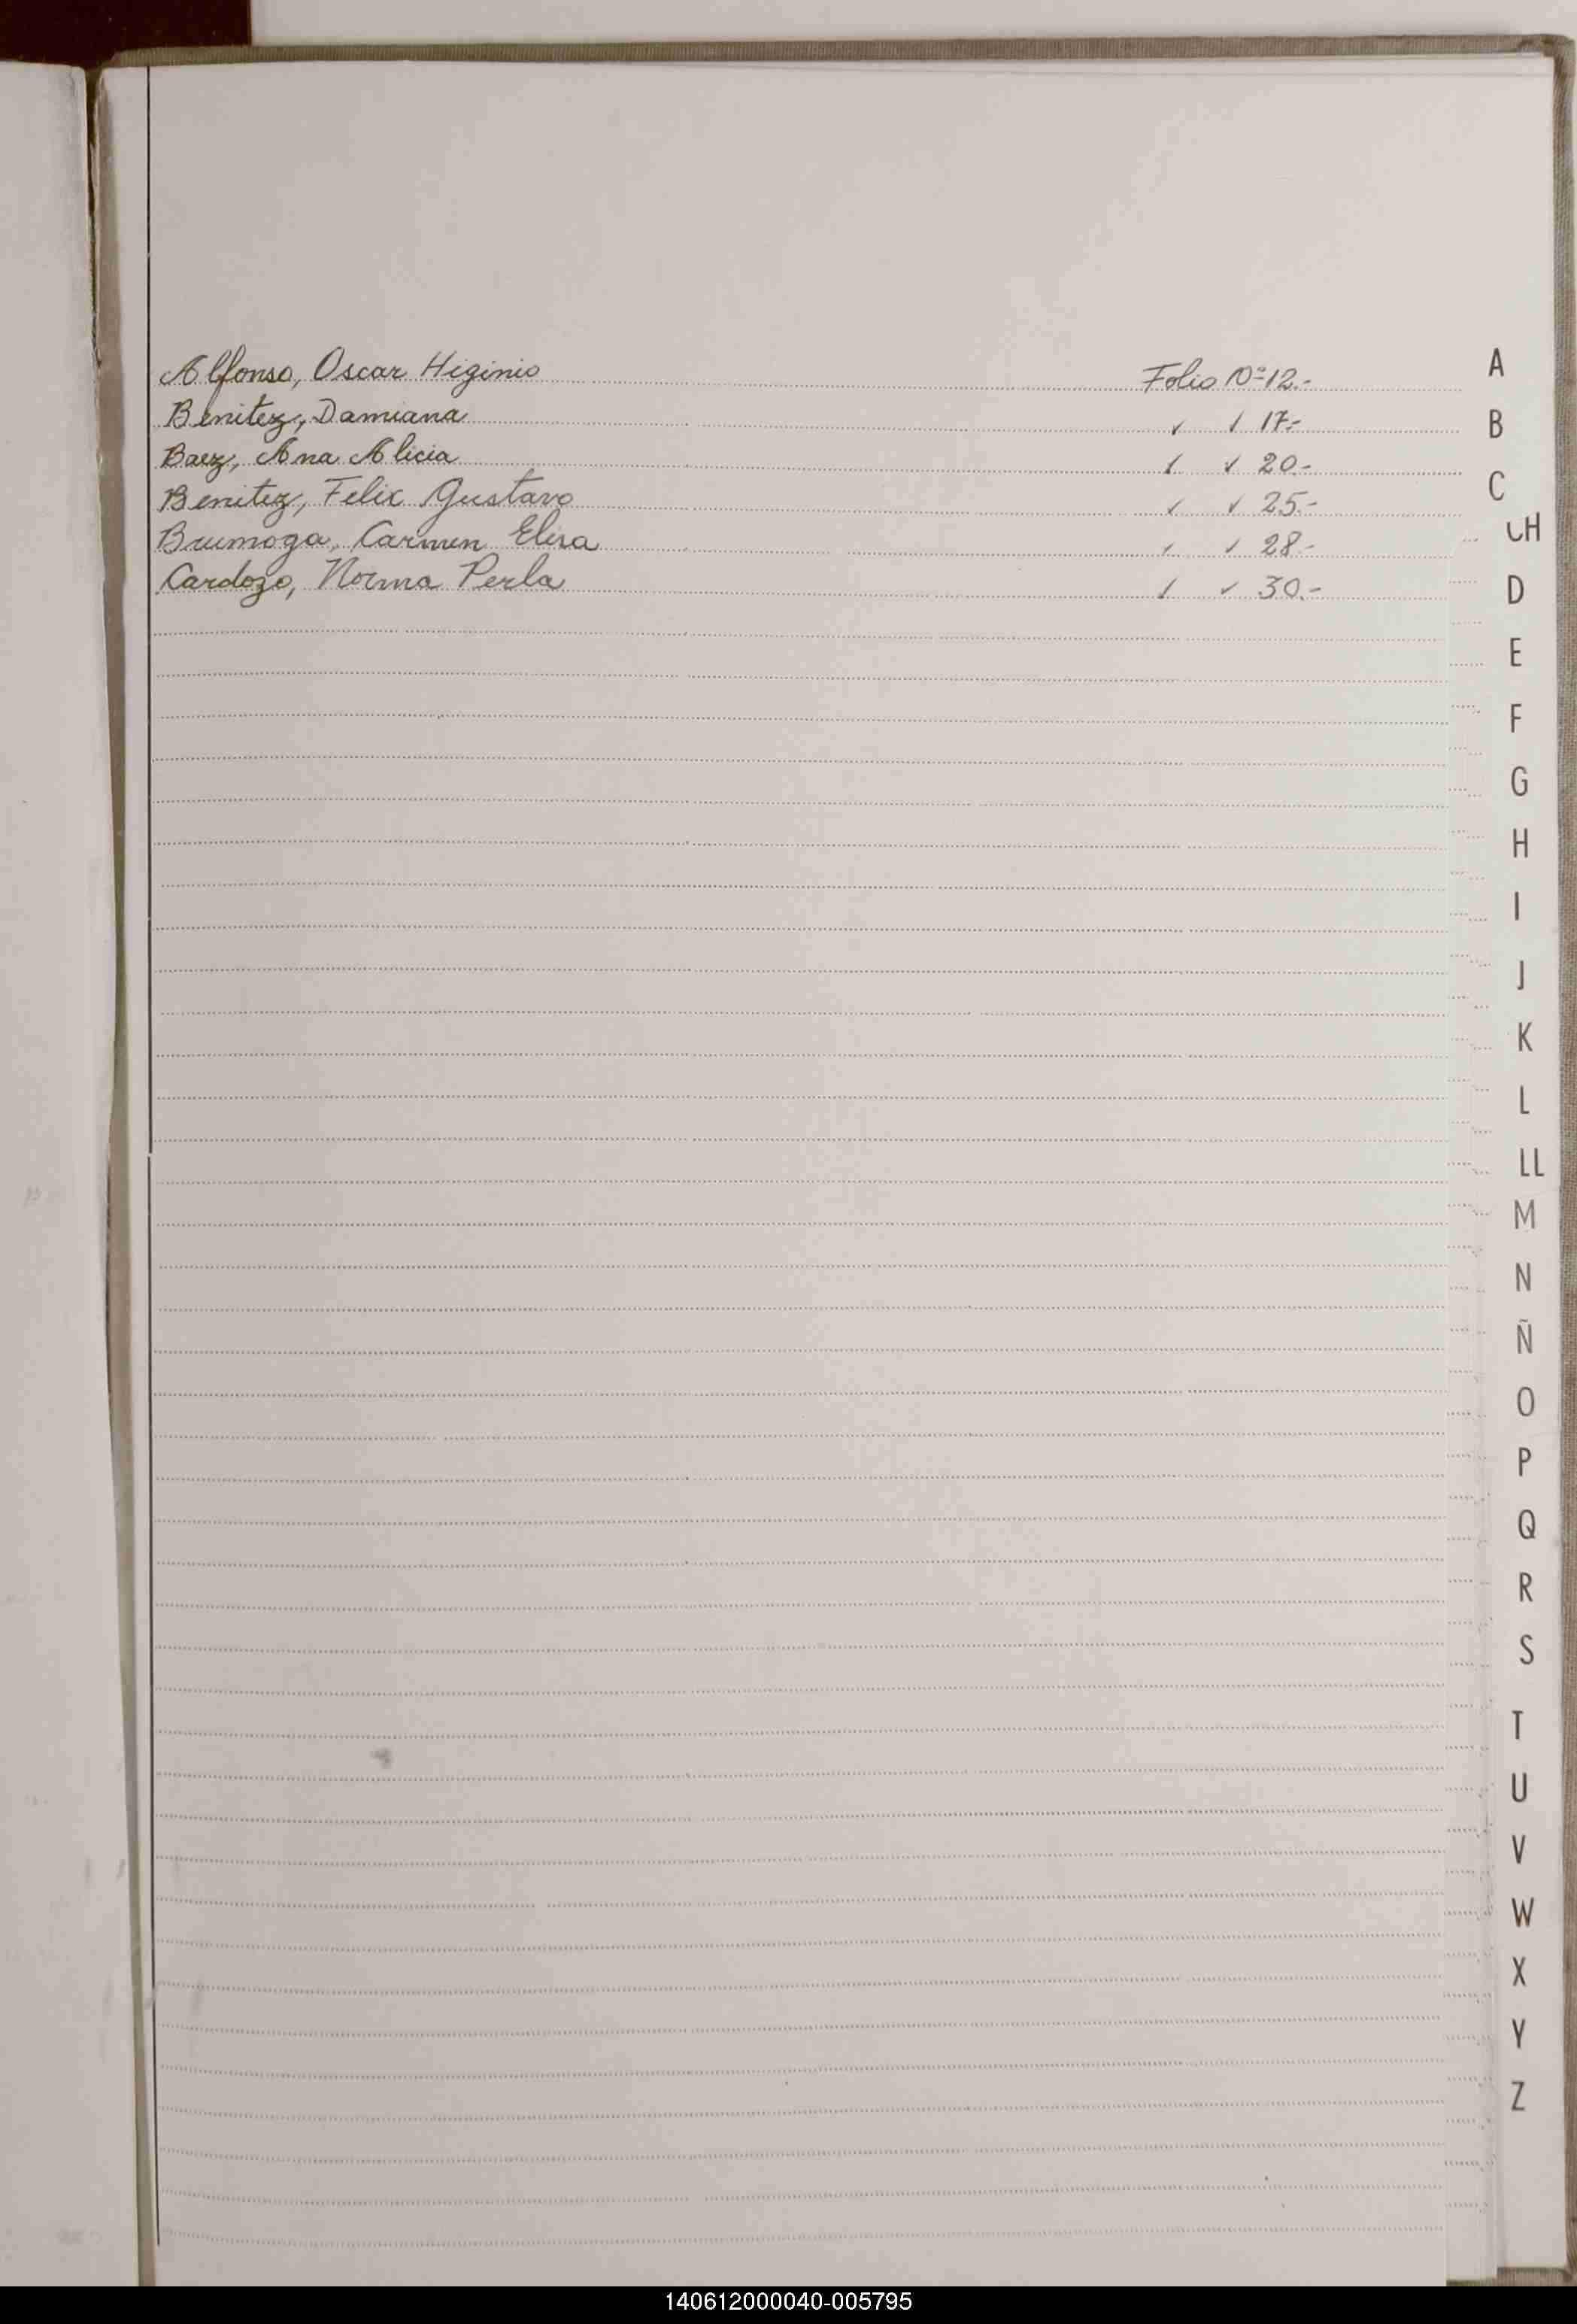 Alfonso, Oscar Higinio Folio Nº 12.-
Benitez, Damiana ✓ ✓ 17.-
Baez, Ana Alicia ✓ ✓ 20.-
Benitez, Felix Gustavo ✓ ✓ 25.-
Brumoga, Carmen Elisa ✓ ✓ 28.-
Cardozo, Norma Perla ✓ ✓ 30.-
A
B
C
CH
D
E
F
G
H
I
J
K
L
LL
M
N
Ñ
O
P
Q
R
S
T
U
V
W
X
Y
Z
140612000040-005795